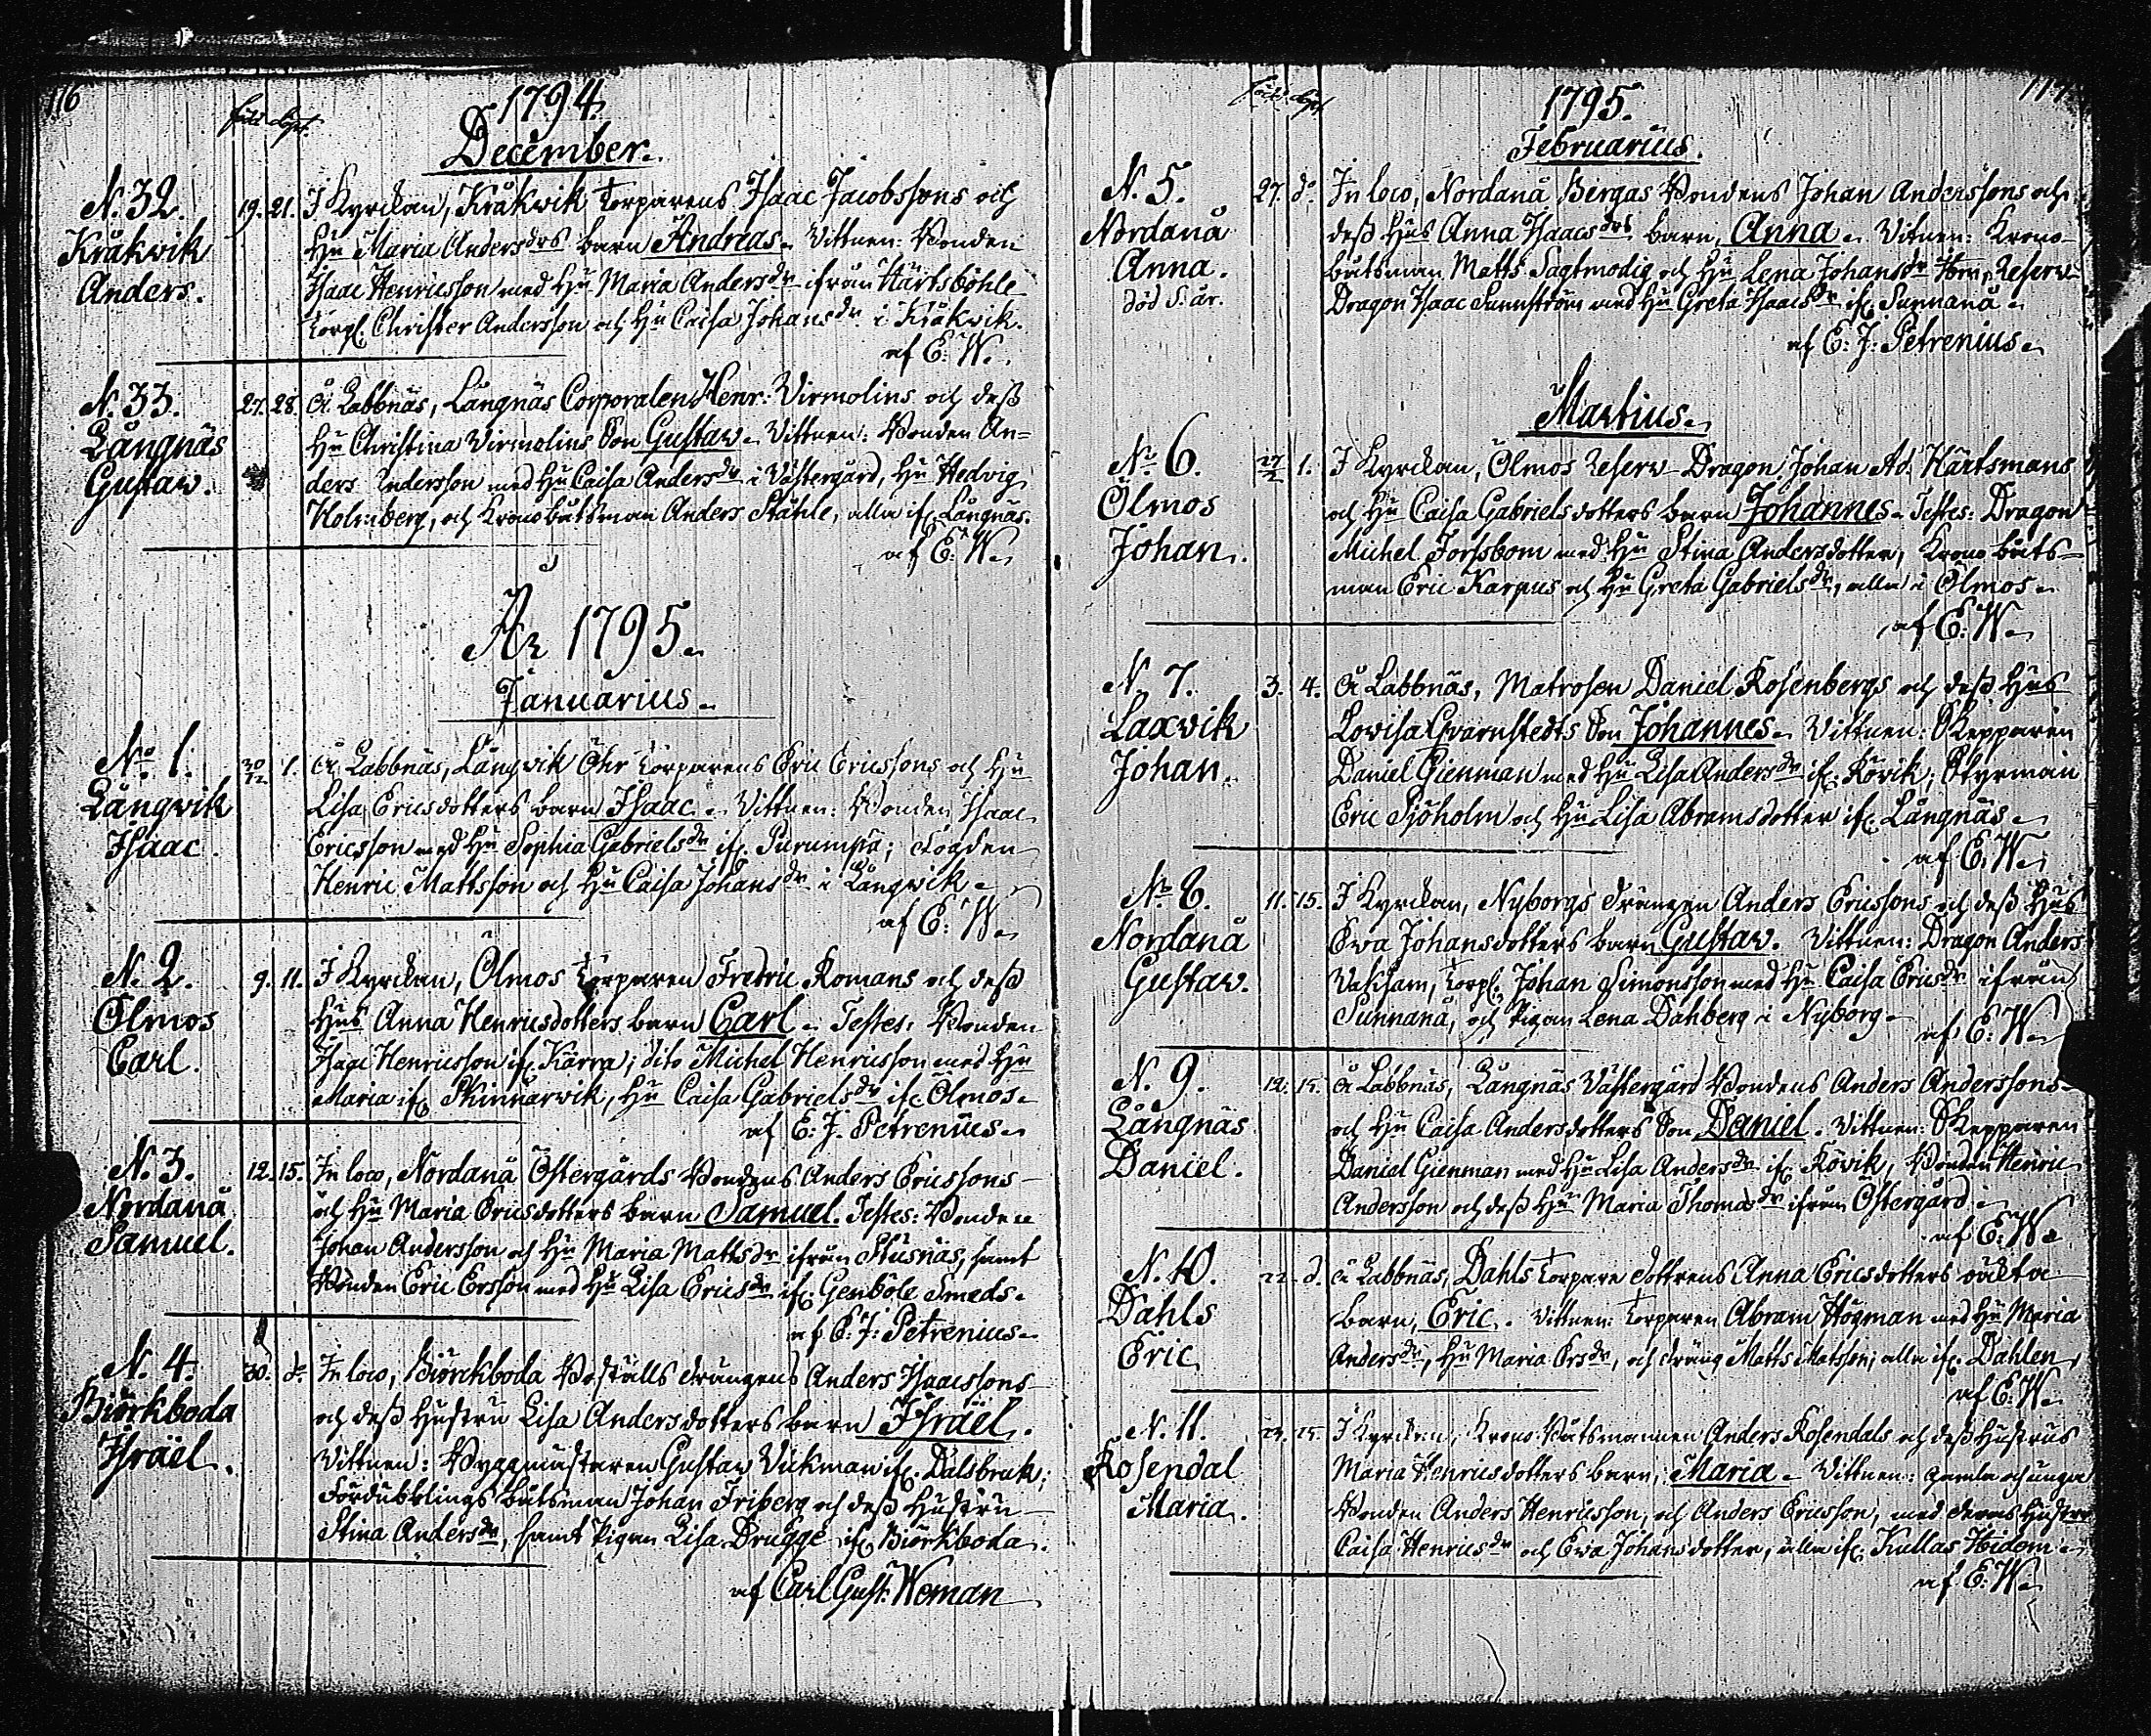 116
född döpt.
1794.
December.
N. 32.
Kråkvik
Anders.
19. 21. I Kyrckan, Kråkwik Torparens Isaac Jacobssons och
Hu Maria Andersdrs barn Andreas. Vittnen: Bonden
Isaac Henricsson med Hu Maria Andersdr ifrån Härtsböhle
Torp. Christer Andersson och Hu Caisa Johansdr i Kråkwik.
af E: W.
N. 33.
Långnäs
Gustaw.
27. 28. å Labbnäs, Långnäs Corporalen Henr: Virmolins och dess
Hu Christina Virmolins Son Gustaw. Vittnen: Bonden An=
ders Andersson med Hu Caisa Andersdr i Västergård, Hu Hedvig
Holmberg, och Kronobåtsman Anders Ståhle, alla if. Långnäs.
af E: W.
År 1795.
Januarius.
No. 1.
Långvik
Isaac.
30/12 1. å Labbnäs, Långwik Öhr Torparens Eric Ericssons och Hu
Lisa Ericsdotters barn Isaac. Vittnen: Bonden Isaac
Ericsson med Hu Sophia Gabrielsdr if. Purumpä; Fogden
Henric Mattsson och Hu Caisa Johansdr i Långwik.
af E: W.
N. 2.
Ölmos
Carl.
9. 11. I Kyrckan, Ölmos Torparen Fredric Romans och dess
Hus Anna Henricsdotters barn Carl. Testes: Bonden
Isaac Henricsson if. Kärra; dito Michel Henricsson med Hu
Maria if. Skinnarwik, Hu Caisa Gabrielsdr if. Ölmos.
af E: J. Petrenius.
N. 3.
Nordanå
Samuel.
12. 15. In loco, Nordanå Östergårds Bondens Anders Ericssons
och Hu Maria Ericsdotters barn Samuel. Testes: Bonden
Johan Andersson och Hu Maria Mattsdr ifrån Stusnäs, samt
Bonden Eric Ersson med Hu Lisa Ericsdr if. Genböle Smeds.
af E: J: Petrenius.
N. 4.
Biörkboda
Israël.
30. do In loco, Biörckboda Boställs drängens Anders Isaacssons
och dess Hustru Lisa Andersdotters barn Israël.
Vittnen: Byggmästaren Gustaw Vickman if. Dalsbruk;
Fördubblings Båtsman Johan Friberg och dess Hustru
Stina Andersdr, samt Pigan Lisa Drugge if. Biörkboda.
af Carl Gust: Woman
117
född döpt
1795.
Februarius.
N. 5.
Nordanå
Anna.
död s. år.
27. do In loco, Nordanå Bergas Bondens Johan Anderssons och
dess Hus Anna Isaacsdrs barn, Anna. Vitnen: Krono-
båtsman Matts Sagtmodig och Hu Lena Johansdr, Reserv-
Dragon Isaac Sunnström med Hu Greta Isaacsdr if. Sunnanå.
af E: J: Petrenius.
Martius.
No 6.
Ölmos
Johan.
27/2 1. I Kyrckan, Ölmos Reserv Dragon Johan Ad. Härtsmans
och Hu Caisa Gabrielsdotters barn Johannes. Testes: Dragon
Michel Forssbom med Hu Stina Andersdotter, Krono båts-
man Eric Karpus och Hu Greta Gabrielsdr, alla i Ölmos.
af E: W.
N. 7.
Laxvik
Johan.
3. 4. å Labbnäs, Matrosen Daniel Rosenbergs och dess Hus
Lowisa Qvarnstedts Son Johannes. Vittnen: Skepparen
Daniel Gienman med Hu Lisa Andersdr if. Rövik; Styrman
Eric Sjöholm och Hu Lisa Abramsdotter if. Långnäs.
af E. W.
No 8.
Nordanå
Gustav.
11. 15. I Kyrckan, Nyborgs drängen Anders Ericssons och dess Hus
Ewa Johansdotters barn Gustav. Vittnen: Dragon Anders
Vaksam, Torp. Johan Simonsson med Hu Caisa Ericsdr ifrån
Sunnanå, och Pigan Lena Dahberg i Nyborg.
af E: W.
N. 9.
Långnäs
Daniel.
12. 15. å Labbnäs, Långnäs Västergård Bondens Anders Anderssons
och Hu Caisa Andersdotters Son Daniel. Vittnen: Skepparen
Daniel Gienman med Hu Lisa Andersdr if. Rövik, Bonden Henric
Andersson och dess Hu Maria Thomasdr ifrån Östergård.
af E: W.
N. 10.
Dahls
Eric
22. d. å Labbnäs, Dahls Torpare dottrens Anna Ericsdotters oäkta
barn, Eric. Vittnen: Torparen Abram Högman med Hu Maria
Andersdr, Hu Maria Ersdr, och dräng Matts Matsson; alla if. Dahlen,
af E. W.
N. 11.
Rosendal
Maria.
24. 25. I Kyrckan, Krono Båtsmannen Anders Rosendals och dess Hustrus
Maria Henricsdotters barn, Maria. Vittnen: gamla och unga
Bonden Anders Henricsson, och Anders Ericsson, med deras Hustrur
Caisa Henricsdr och Ewa Johansdotter, alla if. Kullas Hidem.
af E: W.